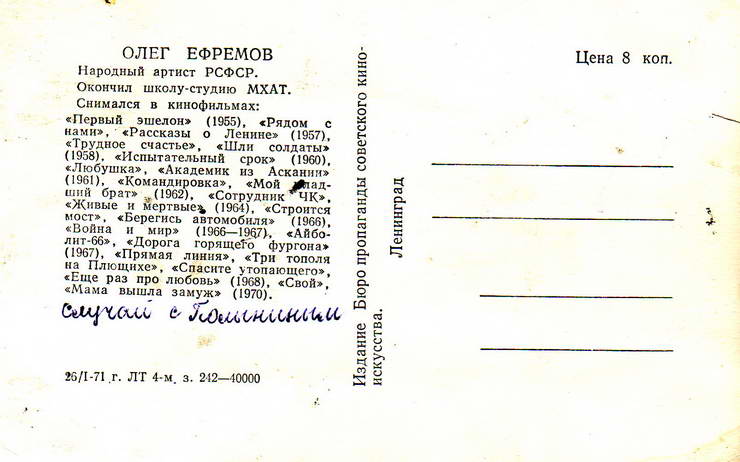 ОЛЕГ ЕФРЕМОВ
Народный артист РСФСР.
Окончил школу-студию МХАТ.
Снимался в кинофильмах:
«Первый эшелон» (1955), «Рядом с
нами», «Рассказы о Ленине» (1957),
«Трудное счастье», «Шли солдаты»
(1958), «Испытательный срок» (1960),
«Любушка», «Академик из Аскании»
(1961), «Командировка», «Мой млад-
ший брат» (1962), «Сотрудник ЧК»,
«Живые и мертвые» (1964), «Строится
мост», «Берегись автомобиля» (1966),
«Война и мир» (1966—1967), «Айбо-
лит-66», «Дорога горящего фургона»
(1967), «Прямая линия», «Три тополя
на Плющихе», «Спасите утопающего»,
«Еще раз про любовь» (1968), «Свой»,
«Мама вышла замуж» (1970).
Случай с Полыниным
26/I-71 г. ЛТ 4-м. з. 242—40000
Издание Бюро пропаганды советского кино-
искусства.
Ленинград
Цена 8 коп.